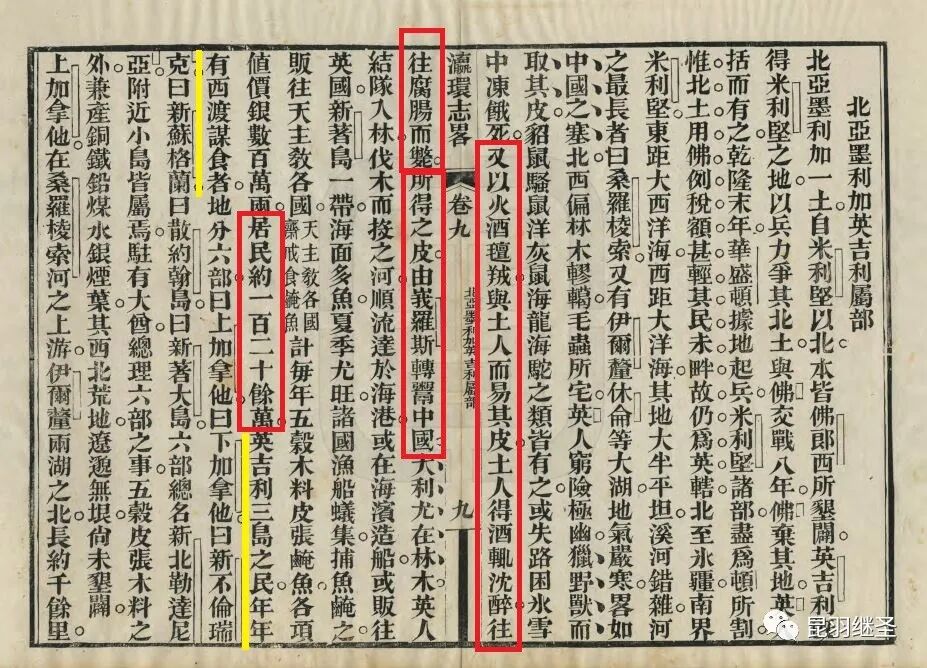 北亞墨利加英吉利屬部
北亞墨利加一土自米利堅以北本皆佛郎西所墾闢英吉利
得米利堅之地以兵力爭其北土與佛交戰八年佛棄其地英
括而有之乾隆末年華盛頓據地起兵米利堅諸部盡爲頓所割
惟北土用佛例稅額甚輕其民未畔故仍爲英轄北至氷疆南界
米利堅東距大西洋海西距大洋海其地大半平坦溪河錯雜河
之最長者曰桑羅棱索又有伊爾釐休侖等大湖地氣嚴寒畧如
中國之塞北西偏林木轇轕毛蟲所宅英人窮險極幽獵野獸而
取其皮貂鼠騷鼠洋灰鼠海龍海駝之類皆有之或失路困氷雪
中凍餓死又以火酒氊羢與土人而易其皮土人得酒輒沈醉往
瀛環志畧 卷九 北亞墨利加英吉利屬部 九
往腐腸而斃所得之皮由峩羅斯轉鬻中國大利尤在林木英人
結隊入林伐木而投之河順流達於海港或在海濱造船或販往
英國新著島一帶海面多魚夏季尤旺諸國漁船蟻集捕魚醃之
販往天主敎各國天主敎各國齋戒食醃魚計每年五穀木料皮張醃魚各項
値價銀數百萬兩居民約一百二十餘萬英吉利三島之民年年
有西渡謀食者地分六部曰上加拿他曰下加拿他曰新不倫瑞
克曰新蘇格蘭曰散約翰島曰新著大島六部總名新北勒達尼
亞附近小島皆屬焉駐有大酋總理六部之事五穀皮張木料之
外兼產銅鐵鉛煤水銀煙葉其西北荒地遼邈無垠尙未墾闢
上加拿他在桑羅棱索河之上游伊爾釐兩湖之北長約千餘里
昆羽继圣